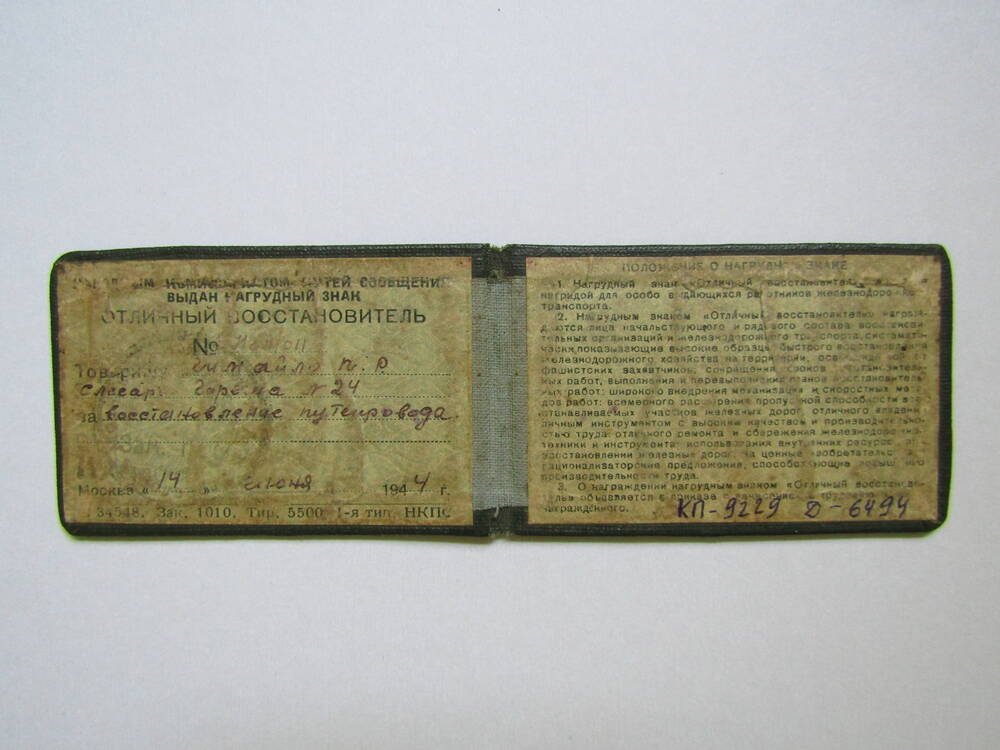 НАРОДНЫМ КОМИССАРИАТОМ ПУТЕЙ СООБЩЕНИЯ
ВЫДАН НАГРУДНЫЙ ЗНАК
ОТЛИЧНЫЙ ВОССТАНОВИТЕЛЬ
№
Товарищу П. Р.
Слесар № 24
за восстановление путепровода
Москва „14 „ июня 1944 г.
34548. Зак. 1010. Тир. 5500 1-я тип. НКПС
ПОЛОЖЕНИЕ О НАГРУДНОМ ЗНАКЕ
1. Нагрудный знак «Отличный восстановитель»
наградой для особо выдающихся работников железнодорожного
транспорта.
2. Нагрудным знаком «Отличный восстановитель» награж-
даются лица начальствующего и рядового состава восстанови-
тельных организаций железнодорожного транспорта, системати-
чески показывающие высокие образцы быстрого восстановления
железнодорожного хозяйства на территории, освобожденной от
фашистских захватчиков, сокращения сроков восстановитель-
ных работ, выполнения и перевыполнения планов восстановитель-
ных работ; широкого внедрения механизации и скоростных мето-
дов работ; всемерного расширения пропускной способности вос-
станавливаемых участков железных дорог; отличного владения
личным инструментом с высоким качеством и производительно-
стью труда; отличного ремонта и сбережения железнодорожной
техники и инструмента; использования внутренних ресурсов при
восстановлении железных дорог; за ценные изобретательские
рационализаторские предложения, способствующие повышению
производительности труда.
3. О награждении нагрудным знаком «Отличный восстанови-
тель» объявляется в приказе с занесением
награжденного.
КП-9229 Д-6494